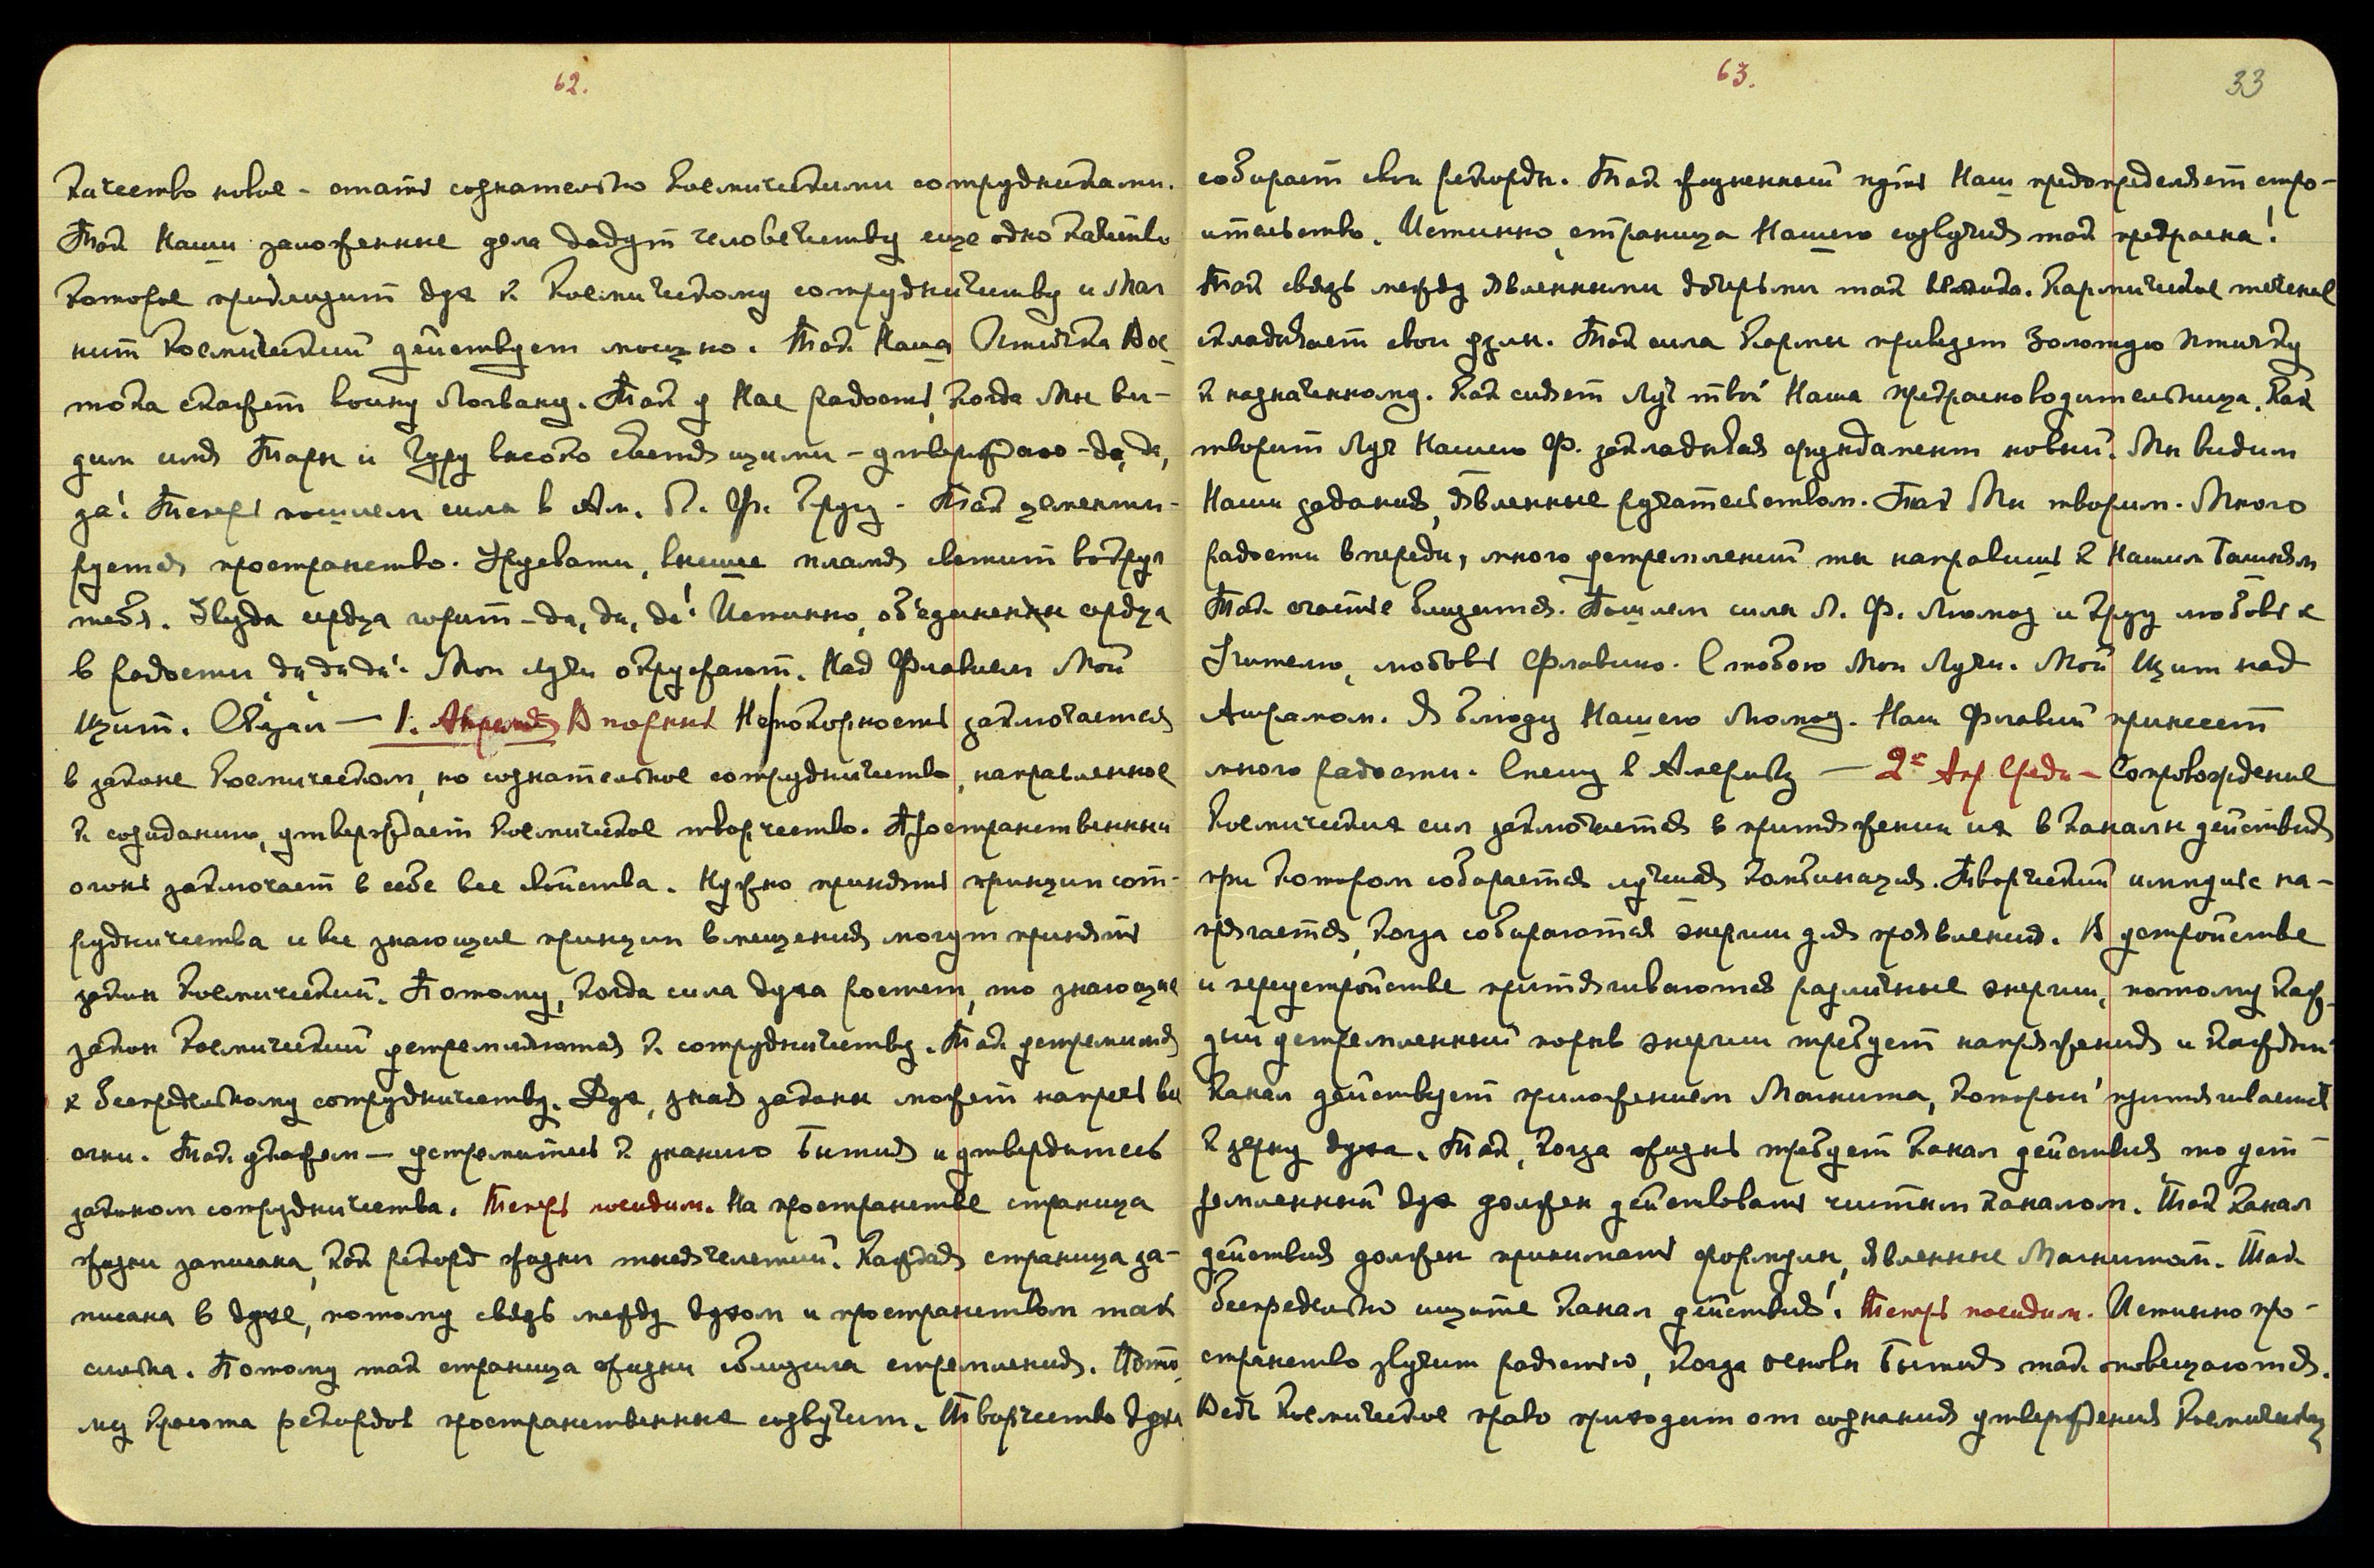 62.
качество новое - стать сознательно космическими сотрудниками.
Так Наши заложенные дела дадут человечеству еще одно качество
которое приблизит дух к космическому сотрудничеству и Маг
нит космический действует мощно. Так Наша Ласточка Вос
тока скажет воину Ловану. Так у Нас радость, когда Мы ви-
дим имя Тары и Гуру высоко светящими - утверждаю - да, да,
да! Теперь пошлем силы в Ам. Л. Ф. Другу - Так цементи-
руется пространство. Урусвати, высшее пламя светит вокруг
тебя. Звезда сердца горит - да, да, да! Истинно, объединенны сердца
в радости да да да! Мои лучи окружают. Над Флавием Мой
щит. Сказал — 1. Апреля Вторник Непокорность заключается
в законе космическом, но сознательное сотрудничество, направленное
к созиданию, утверждает космическое творчество. Пространственный
огонь заключает в себе все свойства. Нужно принять принцип сот-
рудничества и все знающие принцип вмещения могут принять
закон космический. Потому, когда сила духа растет, то знающие
закон космический устремляются к сотрудничеству. Так устремимся
к беспредельному сотрудничеству. Дух, зная законы может напрячь все
огни. Так укажем — устремитесь к знанию Бытия и утвердитесь
законом сотрудничества. Теперь посидим. На пространстве страница
жизни записана, как рекорд жизни тысячелетий. Каждая страница за-
писана в духе, потому связь между духом и пространством так
сильна. Потому так страница жизни сблизила стремления. Пото
му красота рекордов пространственных созвучит. Творчество духа
63.
33
собирает свои рекорды. Так жизненный путь Наш предопределяет стро-
ительство. Истинно, страница Нашего созвучия так прекрасна!
Так связь между явленными дочерьми так велика. Кармическое течение
складывает свои узлы. Так сила Кармы приведет Золотую птичку
к назначенному. Как сияет Луч твой Наша прекрасноводительница. Как
творит Луч Нашего Ф. закладывая фундамент новый. Мы видим
Наши задания, явленные ручательством. Так Мы творим. Много
радости впереди, много устремлений ты направишь к Нашим Башням
Так счастье близится. Пошлем силы Л. Ф. Люмоу и Другу любовь к
Учителю, любовь Флавию. С тобою Мои Лучи. Мой Щит над
Ашрамом. Я блюду Нашего Люмоу. Наш Флавий принесет
много радости. Спешу в Америку — 2е Апр Среда - Сопровождение
Космических сил заключается в притяжении их в каналы действия
при котором собирается лучшая комбинация. Творческий импульс на-
прягается, когда собираются энергии для проявления. В устройстве
и переустройстве притягиваются различные энергии, потому каж-
дый устремленный порыв энергии требует напряжения и каждый
канал действует приложением Магнита, который притягивается
к зерну духа. Так, когда жизнь требует канал действия, то уст
ремленный дух должен действовать чистым каналом. Так канал
действия должен принимать формулы, явленные Магнитом. Так
беспредельно ищите канал действия! Теперь посидим. Истинно про-
странство звучит радостью, когда основы Бытия так оповещаются.
Ведь Космическое право приходит от сознания утверждения Космическому